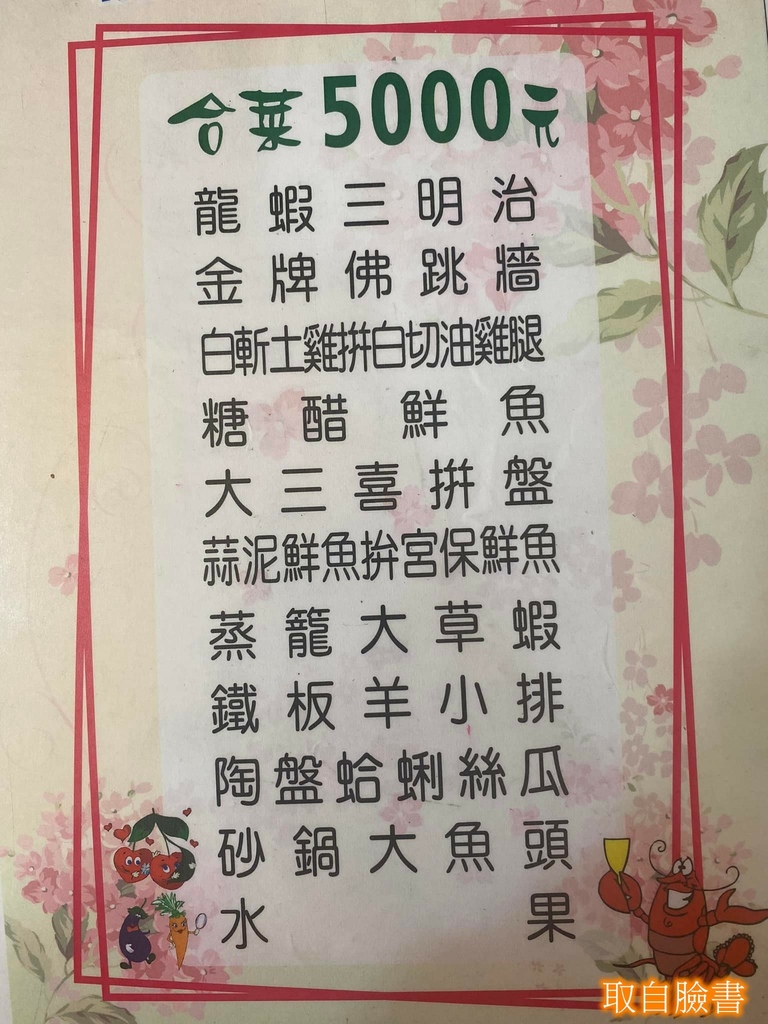 合菜5000元
龍蝦三明治
金牌佛跳牆
白斬土雞拼白切油雞腿
糖醋鮮魚
大三喜拼盤
蒜泥鮮魚拼宮保鮮魚
蒸籠大草蝦
鐵板羊小排
陶盤蛤蜊絲瓜
砂鍋大魚頭
水果
取自臉書